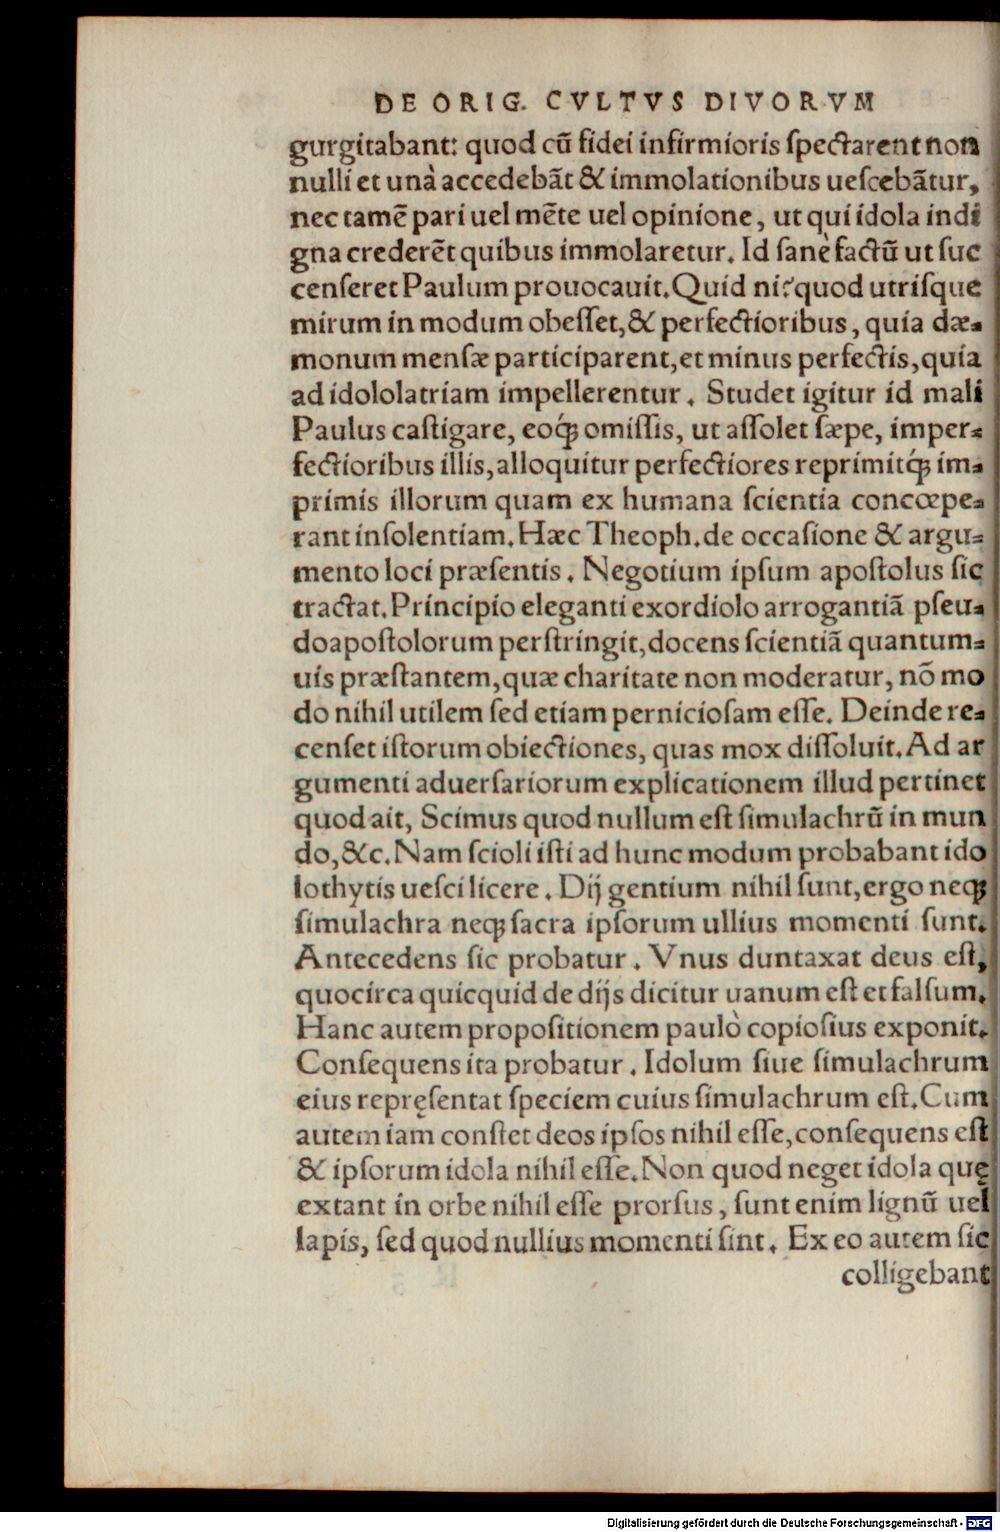 DE ORIG. CVLTVS DIVORVM
gurgitabant: quod cū fidei infirmioris ſpectarent non
nulli et unà accedebāt & immolationibus ueſcebātur,
nec tamē pari uel mēte uel opinione, ut qui idola indi
gna crederēt quibus immolaretur. Id ſanè factū ut ſuc
cenſeret Paulum prouocauit. Quid ni? quod utriſque
mirum in modum obeſſet, & perfectioribus, quia dæ-
monum menſæ participarent, et minus perfectis, quia
ad idololatriam impellerentur. Studet igitur id mali
Paulus caſtigare, eoq́ꝫ omiſſis, ut aſſolet ſæpe, imper-
fectioribus illis, alloquitur perfectiores reprimitq́ꝫ im-
primis illorum quam ex humana ſcientia concœpe-
rant inſolentiam. Hæc Theoph. de occaſione & argu-
mento loci præſentis. Negotium ipſum apoſtolus ſic
tractat. Principio eleganti exordiolo arrogantiā pſeu-
doapoſtolorum perſtringit, docens ſcientiā quantum-
uis præſtantem, quæ charitate non moderatur, nō mo
do nihil utilem ſed etiam pernicioſam eſſe. Deinde re-
cenſet iſtorum obiectiones, quas mox diſſoluit. Ad ar
gumenti aduerſariorum explicationem illud pertinet
quod ait, Scimus quod nullum eſt ſimulachrū in mun
do, &c. Nam ſcioli iſti ad hunc modum probabant ido
lothytis ueſci licere. Dij gentium nihil ſunt, ergo neqꝫ
ſimulachra neqꝫ ſacra ipſorum ullius momenti ſunt.
Antecedens ſic probatur. Vnus duntaxat deus eſt,
quocirca quicquid de dijs dicitur uanum eſt et falſum.
Hanc autem propoſitionem paulò copioſius exponit.
Conſequens ita probatur. Idolum ſiue ſimulachrum
eius repręſentat ſpeciem cuius ſimulachrum eſt. Cum
autem iam conſtet deos ipſos nihil eſſe, conſequens eſt
& ipſorum idola nihil eſſe. Non quod neget idola quę
extant in orbe nihil eſſe prorſus, ſunt enim lignū uel
lapis, ſed quod nullius momenti ſint. Ex eo autem ſic
colligebant
Digitalisierung gefördert durch die Deutsche Forschungsgemeinschaft - DFG